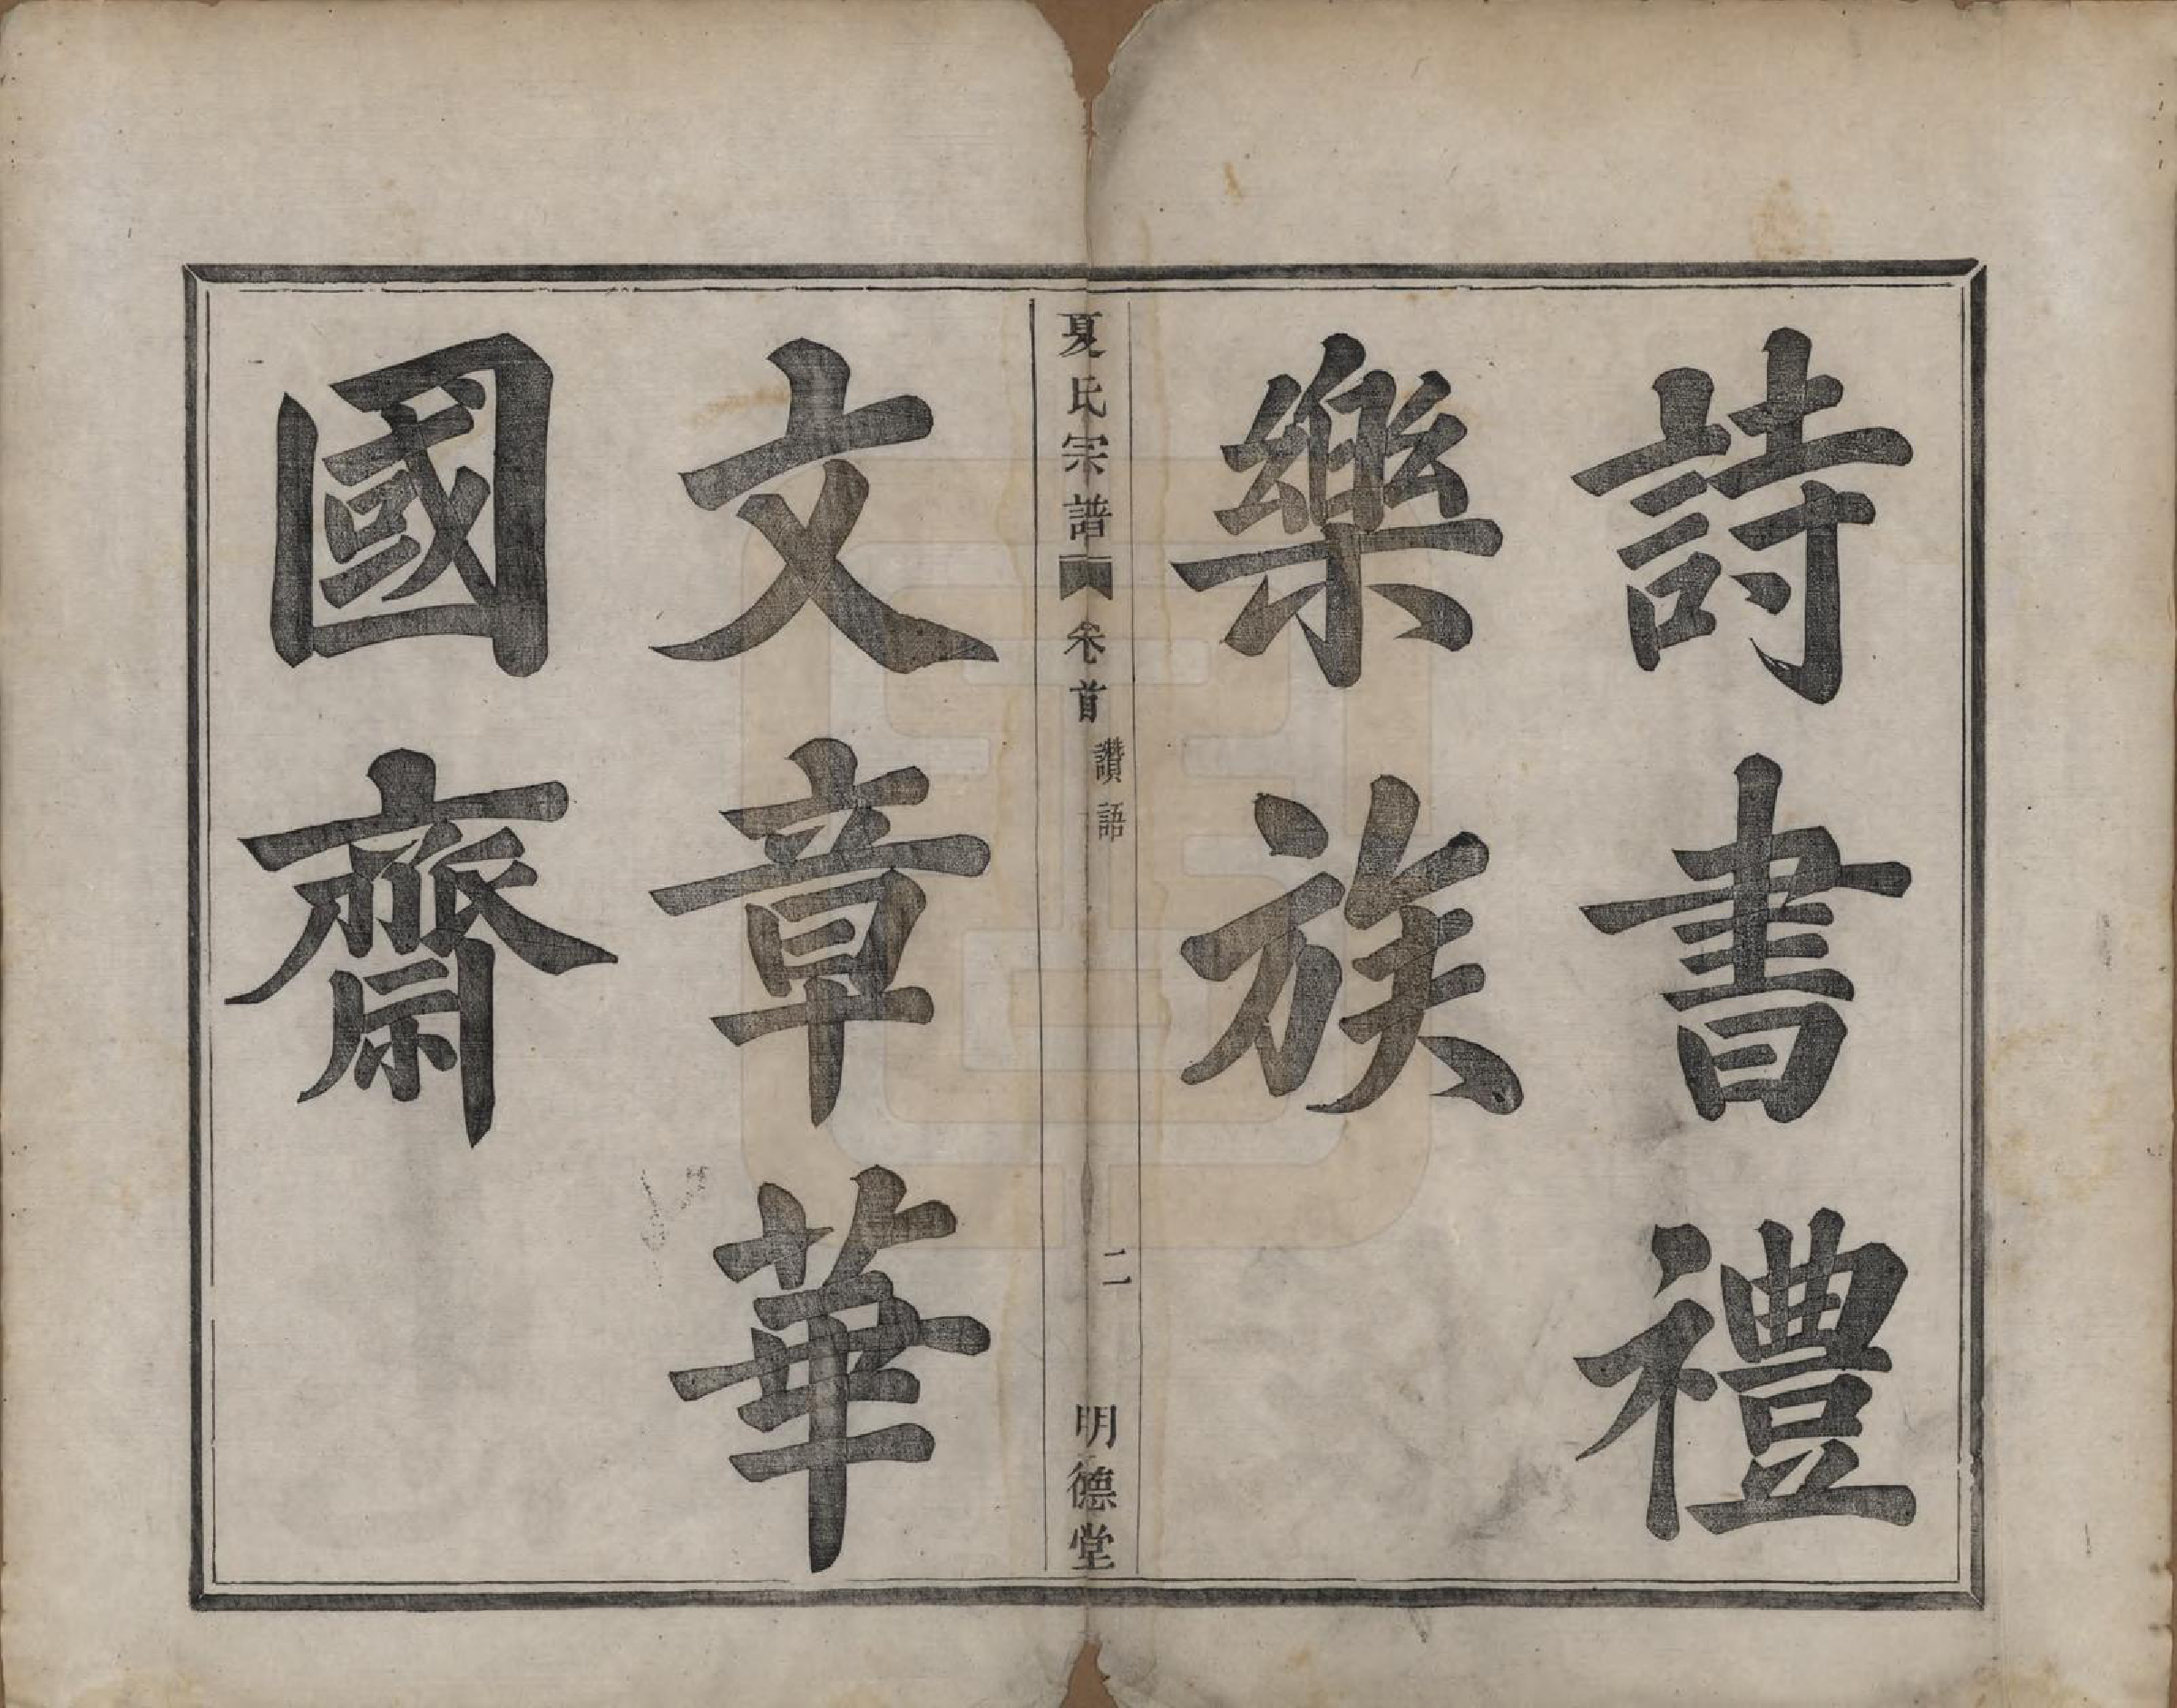 詩書禮
樂族
夏氏宗譜
卷首
讚語
二
明德堂
文章華
國齋